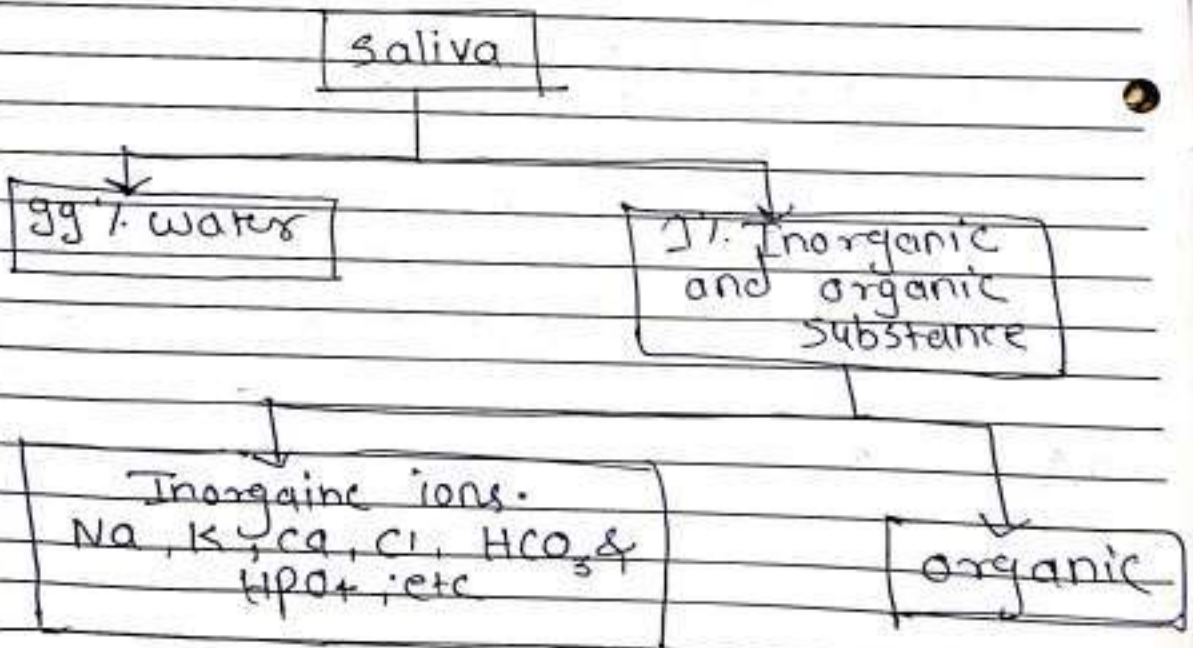 saliva
99% water
1% Inorganic
and organic
substance
Inorgainc ions.
Na, K, Ca, Cl, HCO3 &
HPO4, etc
organic